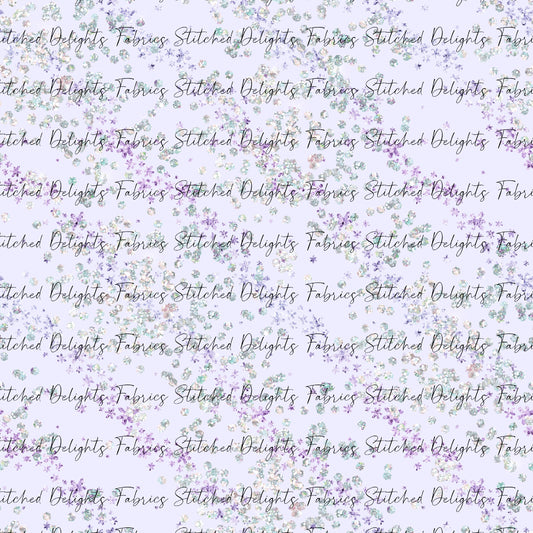 titched Delights Fabrics Stitched Delights Fabrics Stitched Delights
titched Delights Fabrics Stitched Delights Fabrics Stitched Delights
titched Delights Fabrics Stitched Delights Fabrics Stitched Delights
titched Delights Fabrics Stitched Delights Fabrics Stitched Delights
titched Delights Fabrics Stitched Delights Fabrics Stitched Delights
titched Delights Fabrics Stitched Delights Fabrics Stitched Delights
titched Delights Fabrics Stitched Delights Fabrics Stitched Delights
titched Delights Fabrics Stitched Delights Fabrics Stitched Delights
titched Delights Fabrics Stitched Delights Fabrics Stitched Delights
titched Delights Fabrics Stitched Delights Fabrics Stitched Delights